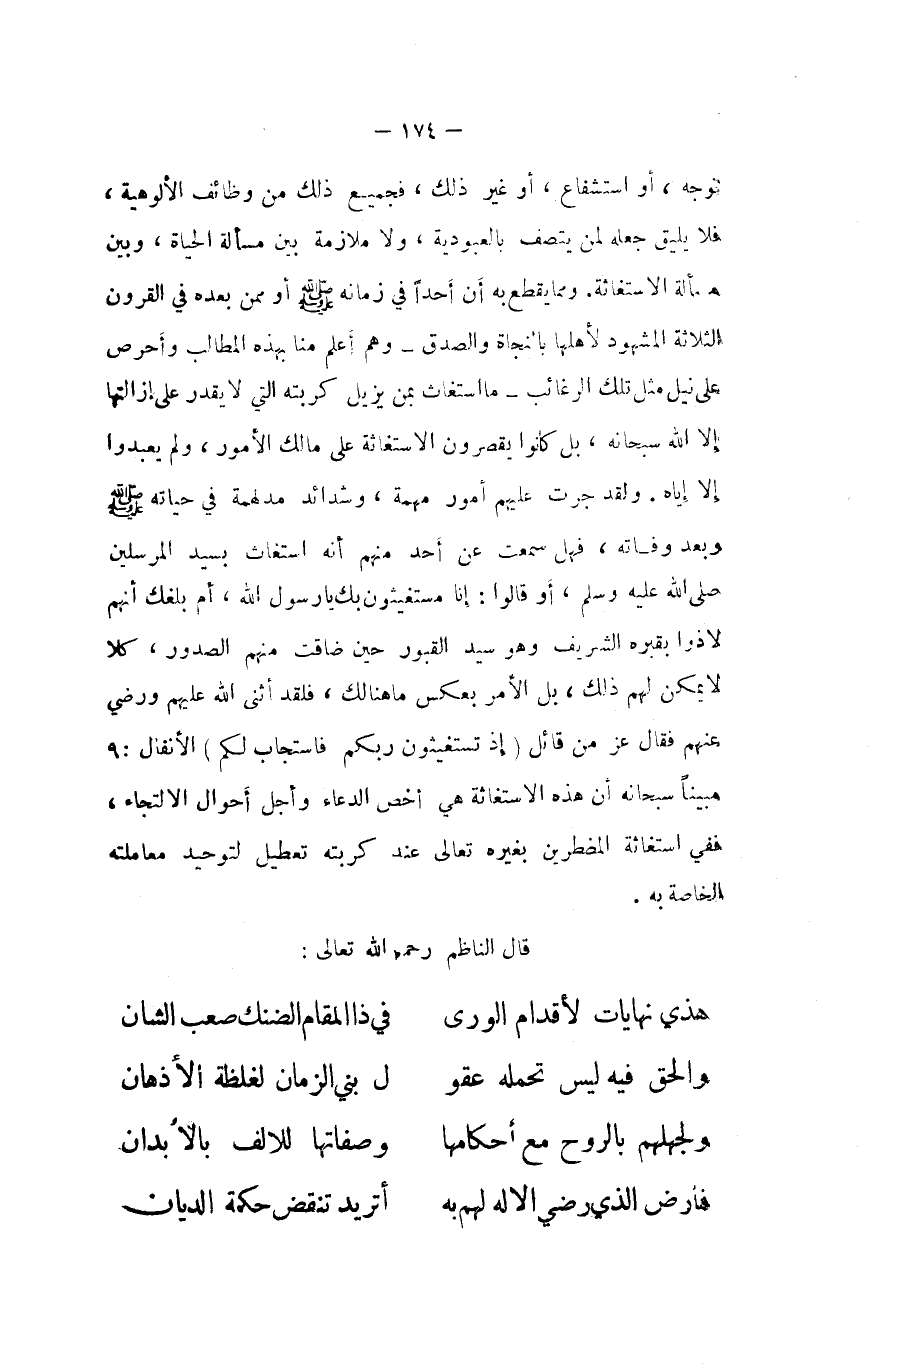 — ١٧٤ —
توجه ، أو استشفاع ، أو غير ذلك ، فجميع ذلك من وظائف الألوهية ،
فلا يليق جعله لمن يتصف بالعبودية ، ولا ملازمة بين مسألة الحياة ، وبين
مسألة الاستغاثة. ومما يقطع به أن أحداً في زمانه ﷺ أو ممن بعده في القرون
الثلاثة المشهود لأهلها بالنجاة والصدق ــ وهم أعلم منا بهذه المطالب وأحرص
على نيل مثل تلك الرغائب ــ ما استغاث بمن يزيل كربته التي لا يقدر على إزالتها
إلا الله سبحانه ، بل كانوا يقصرون الاستغاثة على مالك الأمور ، ولم يعبدوا
إلا إياه . ولقد جرت عليهم أمور مهمة ، وشدائد مدلهمة في حياته ﷺ
وبعد وفاته ، فهل سمعت عن أحد منهم أنه استغاث بسيد المرسلين
صلى الله عليه وسلم ، أو قالوا : إنا مستغيثون بك يا رسول الله ، أم بلغك أنهم
لاذوا بقبره الشريف وهو سيد القبور حين ضاقت منهم الصدور ، كلا
لا يمكن لهم ذلك ، بل الأمر بعكس ما هنالك ، فلقد أثنى الله عليهم ورضي
عنهم فقال عز من قائل ( إذ تستغيثون ربكم فاستجاب لكم ) الأنفال : ٩
مبيناً سبحانه أن هذه الاستغاثة هي أخص الدعاء وأجل أحوال الالتجاء ،
ففي استغاثة المضطرين بغيره تعالى عند كربته تعطيل لتوحيد معاملته
الخاصة به .
قال الناظم رحمه الله تعالى :
هذي نهايات لأقدام الورى في ذا المقام الضنك صعب الشان
والحق فيه ليس تحمله عقو ل بني الزمان لغلظة الأذهان
ولجهلهم بالروح مع أحكامها وصفاتها للالف بالأبدان
فأرض الذي رضي الاله لهم به أتريد تنقض حكمة الديان